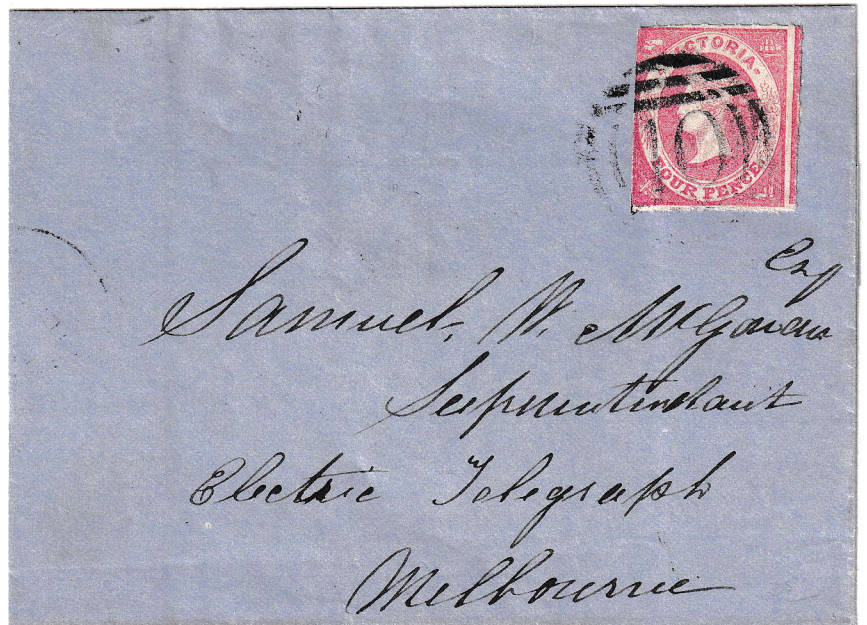 VICTORIA
FOUR PENCE
Esq
Samuel. W. McGowan
Superintendant
Electric Telegraph
Melbourne